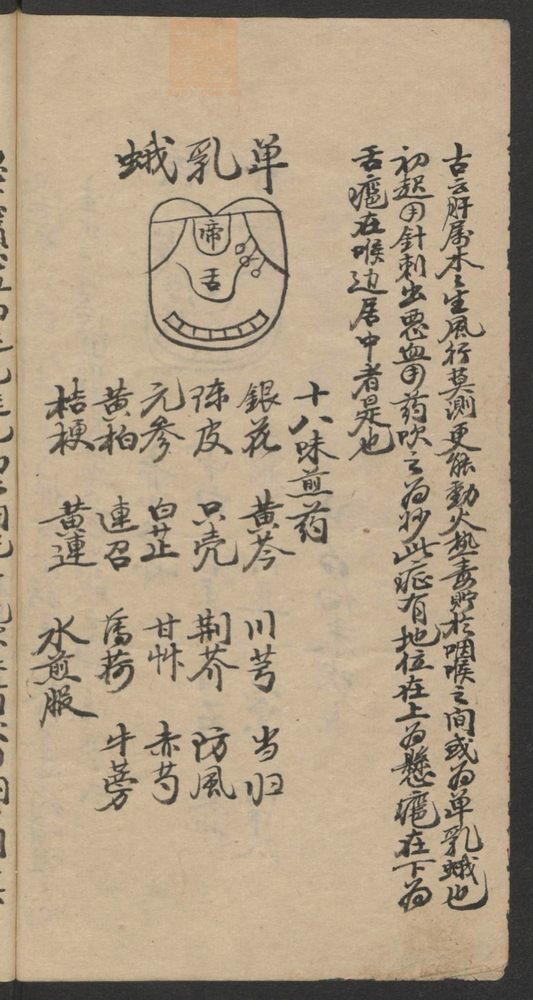 古云肝属木木生風行莫測更能動火热毒貯於咽喉之間或为单乳蛾也
初起用針刺出惡血用葯吹之为妙此症有地位在上为懸癰在下为
舌癰在喉边居中者是也
单乳蛾
啼
舌
十八味煎葯
銀花 黄芩 川芎 当归
陈皮 只壳 荆芥 防風
元参 白芷 甘艸 赤芍
黄柏 連召 荷 牛蒡
桔梗 黄連
水煎服